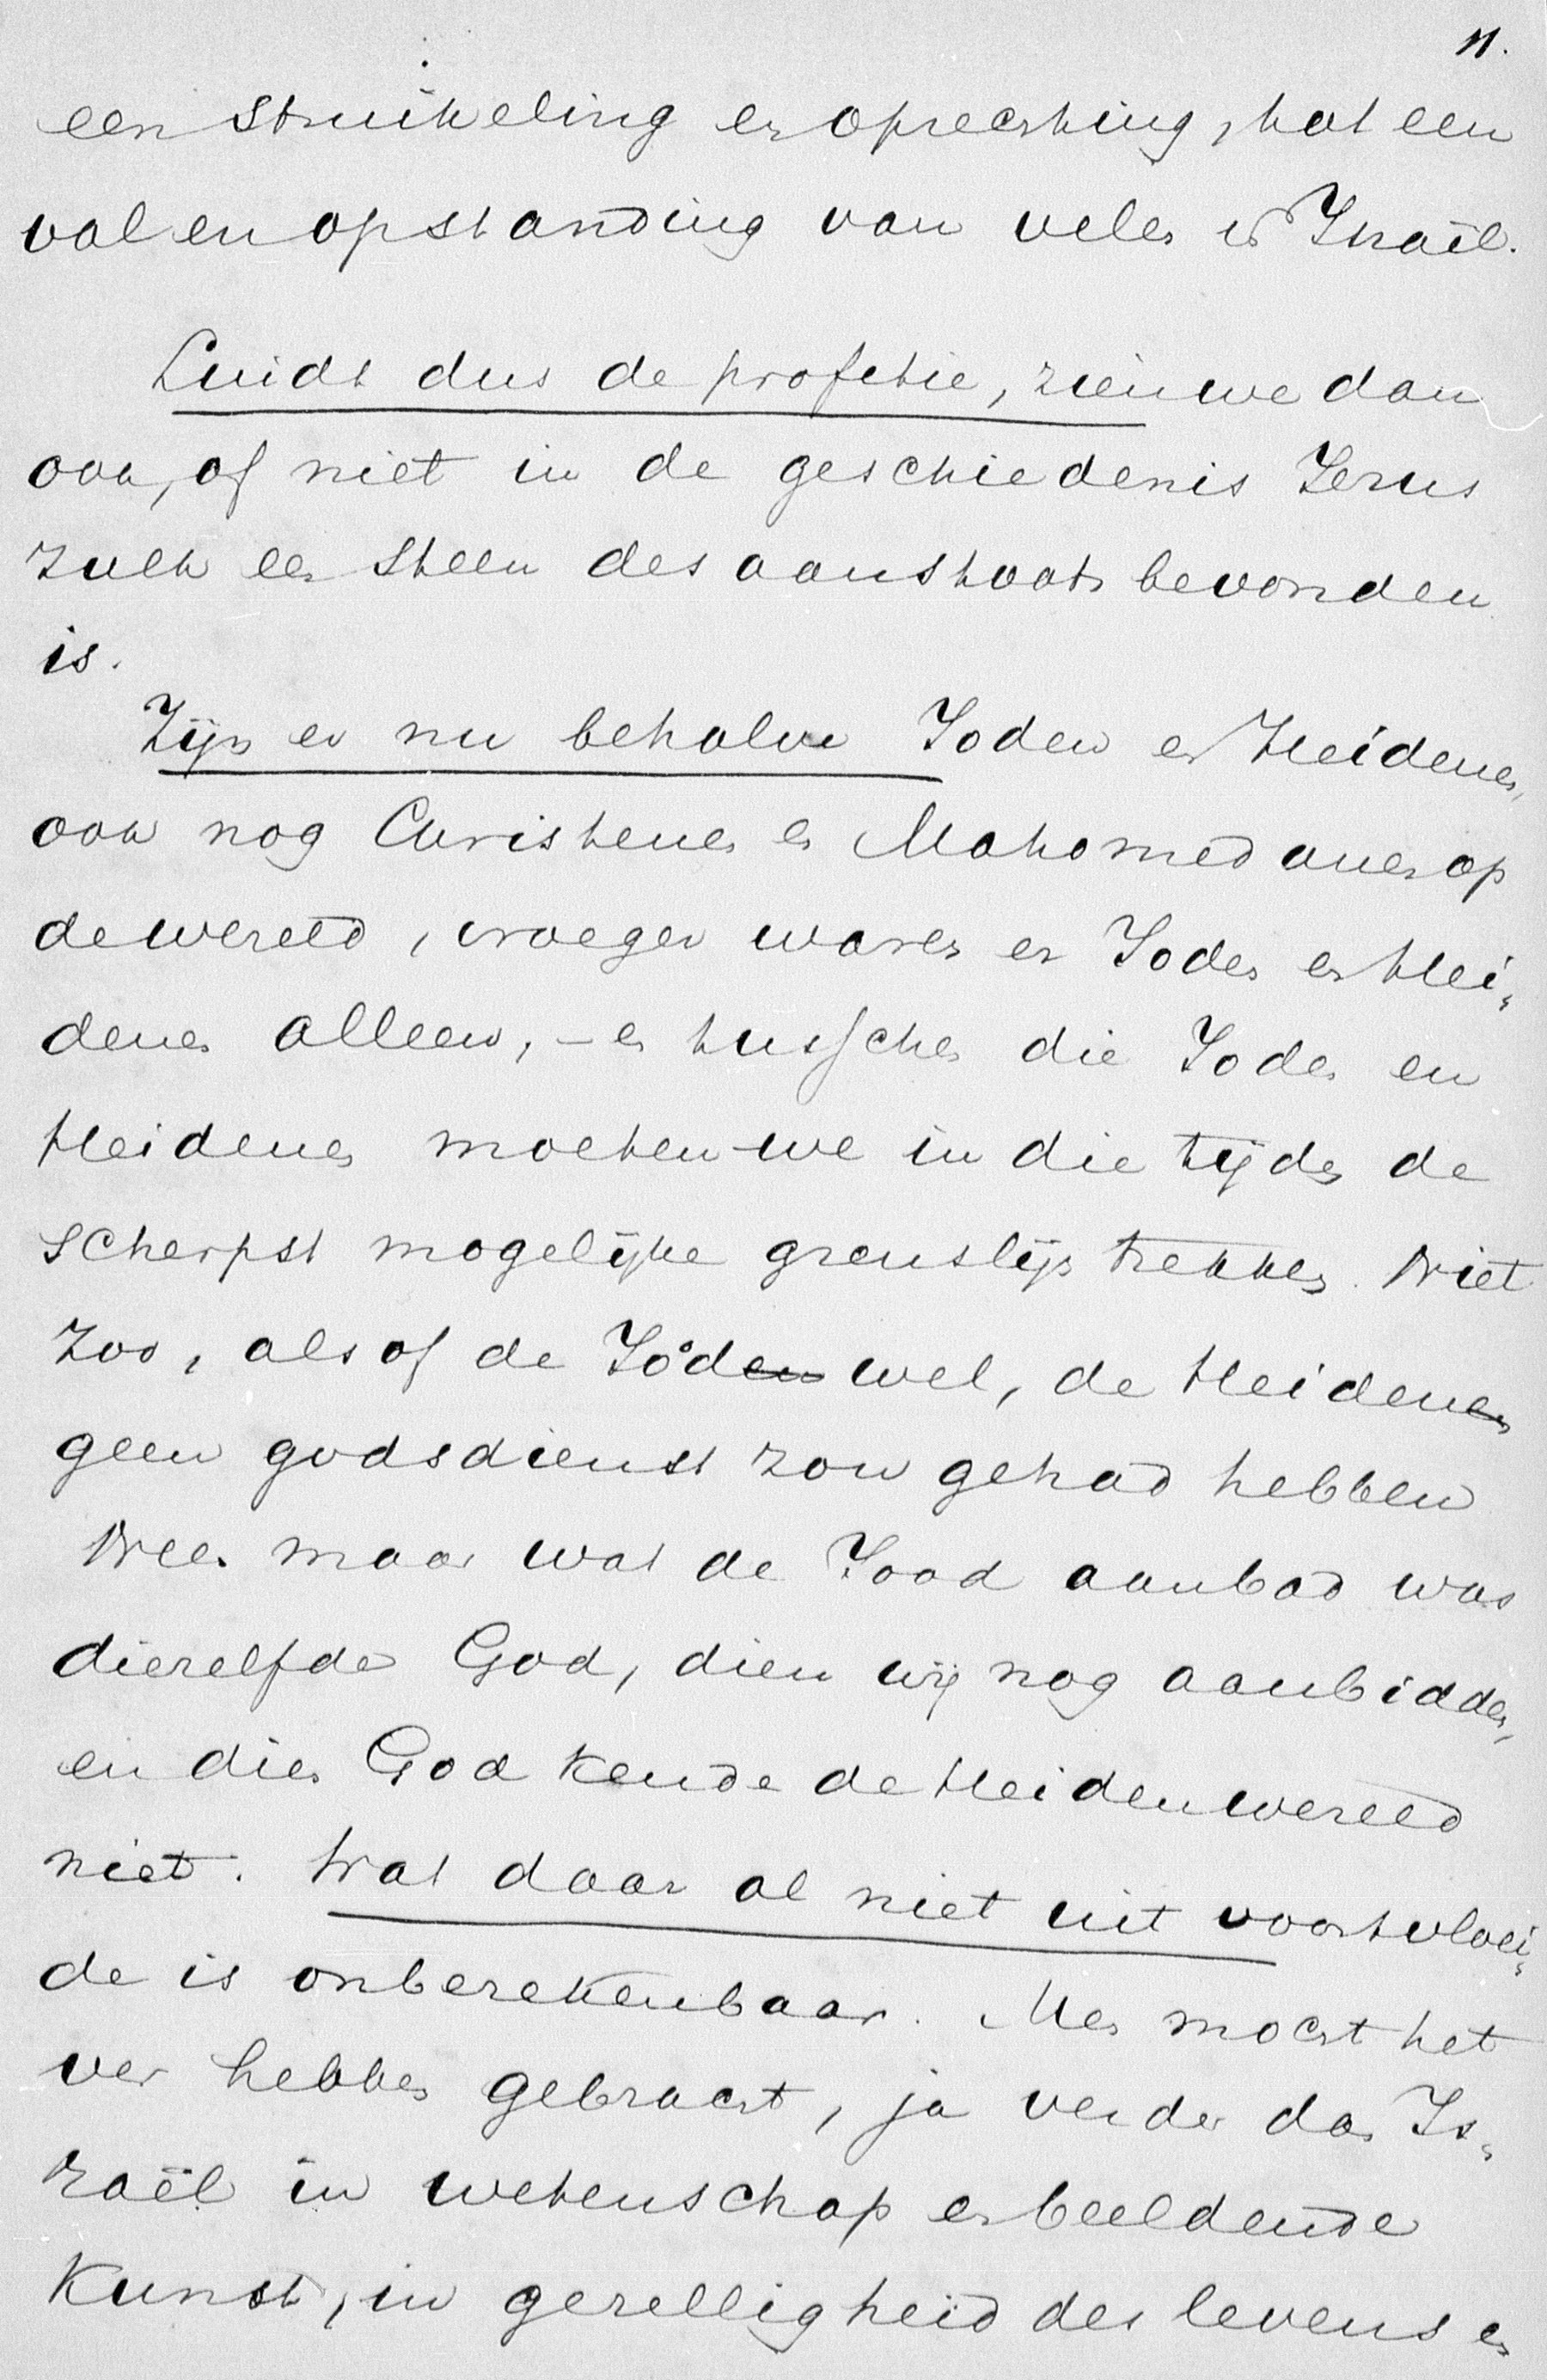 11.
een struikeling en oprechting, tot een
val en opstanding van velen in Israël.
Luidt dus de profetie, zien we dan
ook, of niet in de geschiedenis Jezus
zulk een steen des aanstoots bevonden
is.
Zijn er nu behalve Joden en Heidenen,
ook nog Christenen en Mahomedanen op
de wereld, vroeger waren er Joden en Hei„
denen alleen, – en tusschen die Joden en
Heidenen moeten we in die tijden de
scherpst mogelijke grenslijn trekken. Niet
zoo, alsof de Joden wel, de Heidenen
geen godsdienst zou gehad hebben
Neen maar wat de Jood aanbad was
diezelfde God, dien wij nog aanbidden,
en dien God kende de Heidenwereld
niet. Wat daar al niet uit voortvloei„
de is onberekenbaar. Men mocht het
ver hebben gebracht, ja verder dan Is„
raël in wetenschap en beeldende
Kunst, in gezelligheid des levens en